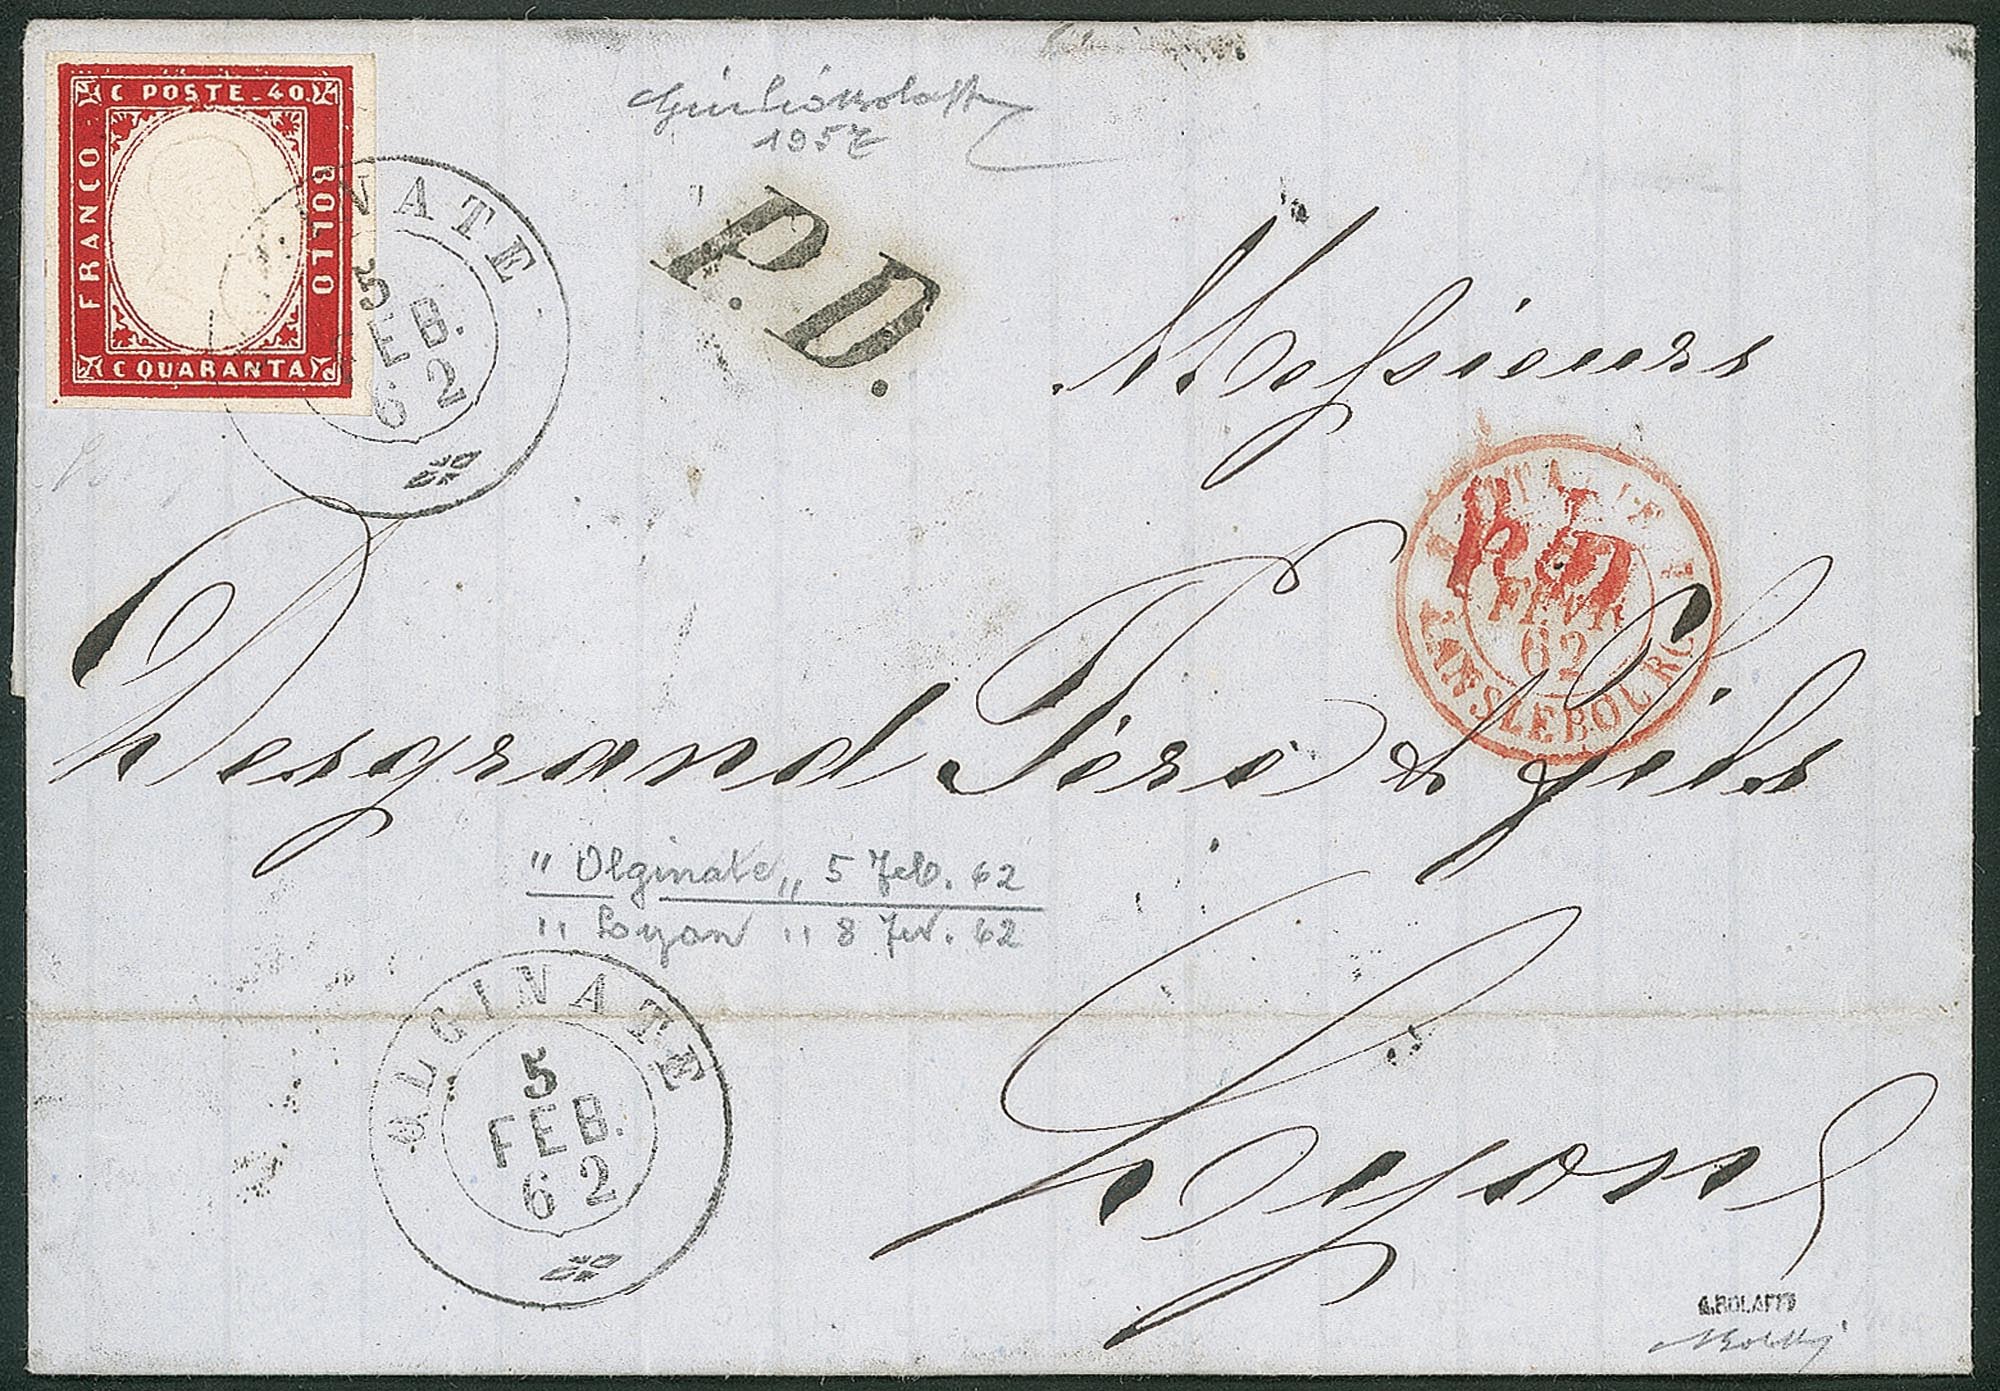 C POSTE . 40.
FRANCO
BOLLO
C QUARANTA
Giulio Bolaffi
1957
P.D.
NATE
5
FEB.
62
Messieurs
ITALIE
P.D.
FEVR
62
LANSLEBOURG
Desgrand Père & Fils
"Olginate" 5 Feb. 62
"Lyon" 8 Fev. 62
OLGINATE
5
FEB.
62
Lyon
A. BOLAFFI